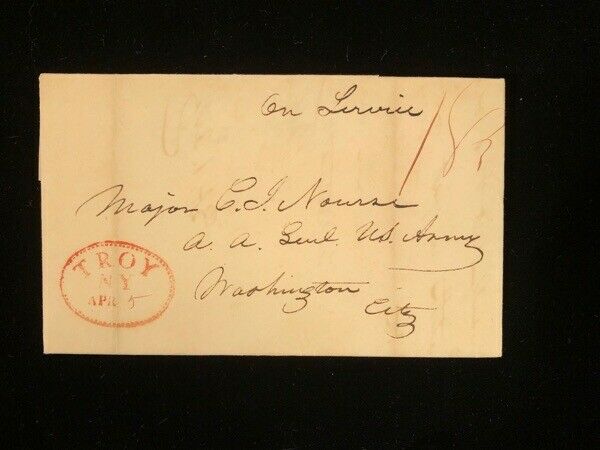 On Service
18¾
Major C. J. Nourse
A. A. Genl. US. Army
Washington
City
TROY
NY
APR 5